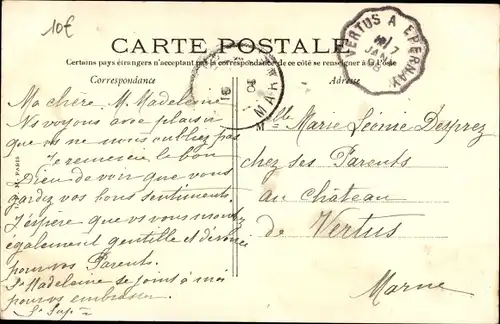 10€
VERTUS A EPERNAY
7
JANV
08
CARTE POSTALE
Certains pays étrangers n'acceptant pas la correspondance de ce côté se renseigner à la Poste
Correspondance
Adresse
MAR
Ma chère M. Madeleine
Ns voyons avec plaisir
que vs ne nous oubliez pas
Je remercie le bon
Dieu de voir que vous
gardez vos bons sentiments.
J'espère que vs vous montrez
également gentille et dévouée
pour vos Parents.
Sr Madeleine se joint à moi
pour vos embrasser
Melle Marie Léonie Desprez
chez ses Parents
au château
de Vertus
Marne
M. PARIS